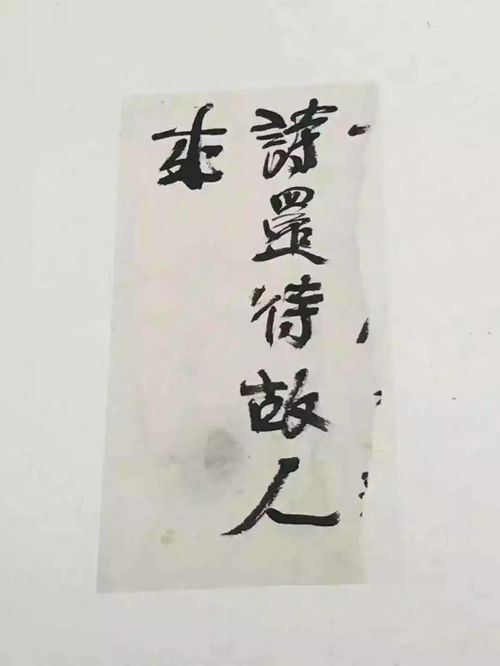 詩還待故人
來